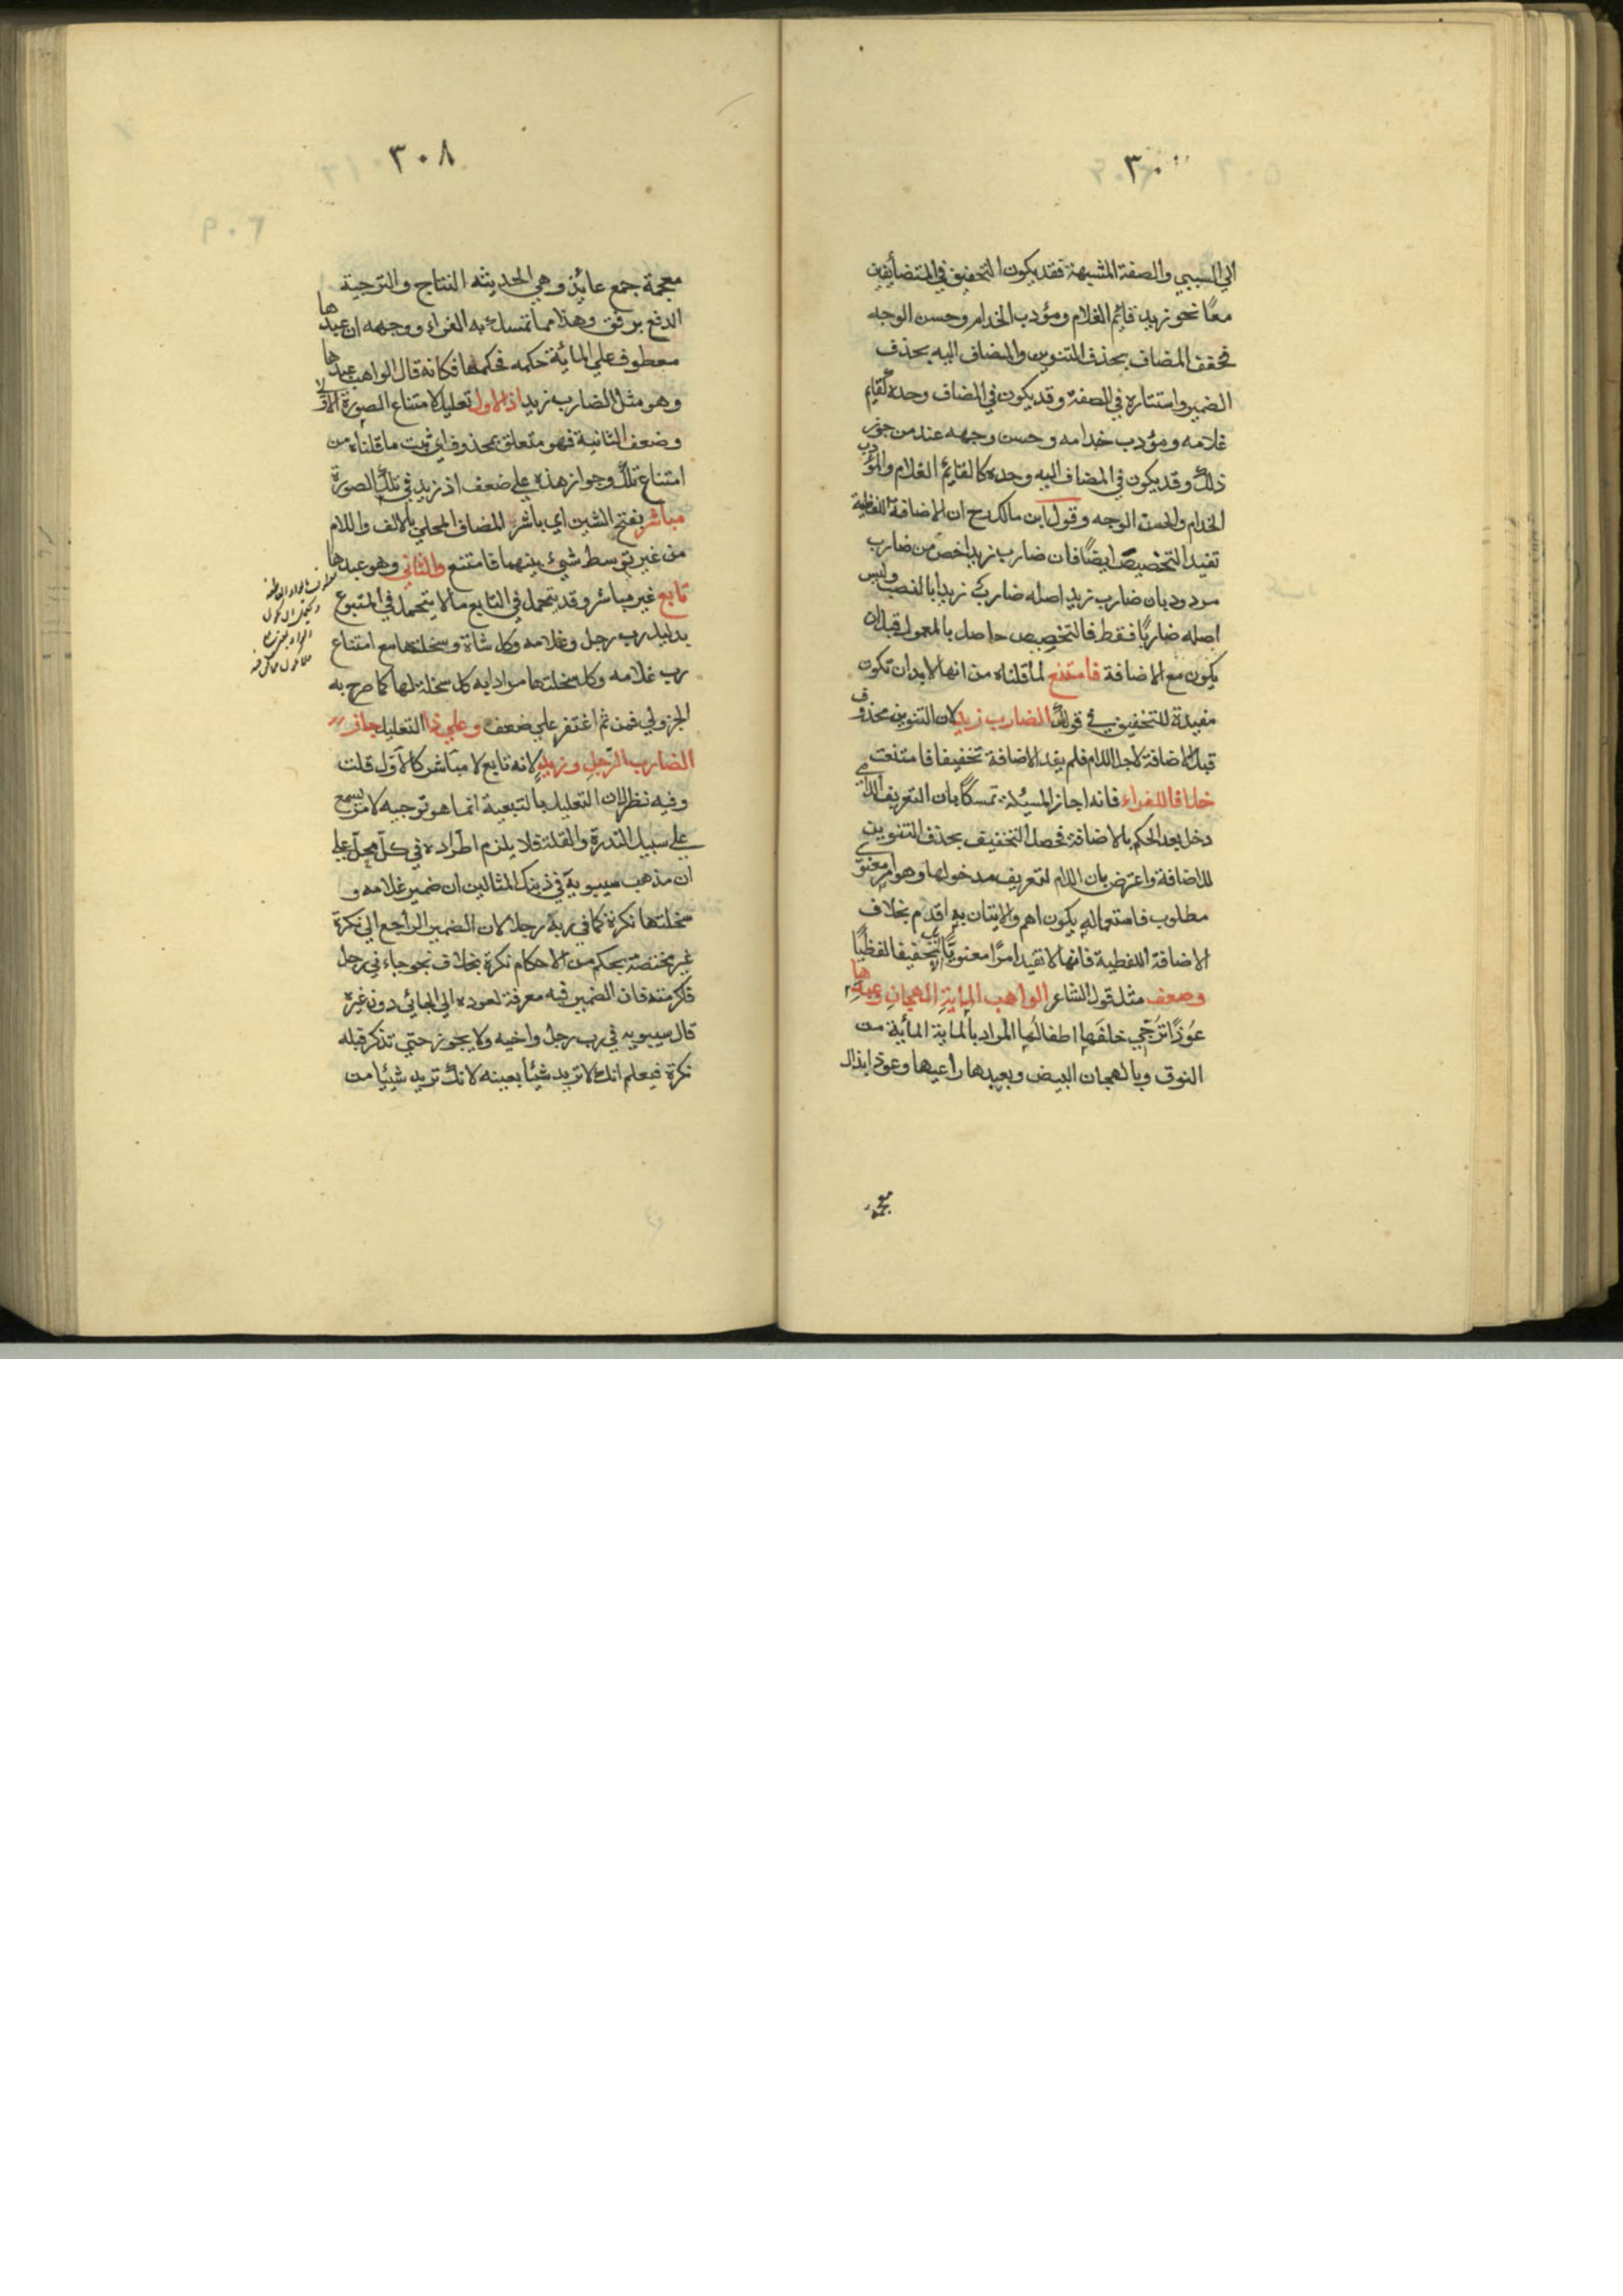 الي السببي والصفة المشبهة فقد يكون التخفيف في المتضايفين
معًا نحو زيد قائم الغلام ومؤدب الخدام وحسن الوجه
فخفف المضاف بحذف التنوين والمضاف اليه بحذف
الضمير واستتاره في الصفة وقد يكون في المضاف وحده كقايم
غلامه ومؤدب خدامه وحسن وجهه عند من جوز
ذلك وقد يكون في المضاف اليه وحده كالقايم الغلام والمؤدب
الخدام والحسن الوجه وقول ابن مالك رح ان الاضافة اللفظية
تفيد التخصيص ايضًا فان ضارب زيد اخص من ضارب
مردود بان ضارب زيد اصله ضارب زيدا بالنصب وليس
اصله ضاربًا فقط فالتخصيص حاصل بالمعمول قبل ان
يكون مع الاضافة فامتنع لما قلناه من انها لا بد ان تكون
مفيدة للتخفيف في قولك الضارب زيد لان التنوين محذوف
قبل الاضافة لاجل اللام فلم يفد الاضافة تخفيفا فامتنعت
خلافا للفراء فانه اجاز المسئلة تمسكًا بان التعريف اللامي
دخل بعد الحكم بالاضافة فحصل التخفيف بحذف التنوين
للاضافة واعترض بان اللام لتعريف مدخولها وهو امر معنوي
مطلوب فاستعماله يكون اهم والاتيان به اقدم بخلاف
الاضافة اللفظية فانها لا تفيد امرًا معنويًّا بل تخفيفا لفظيًا
وضعف مثل قول الشاعر الواهب المايةِ الهجانِ وعبدِها
عُوذًا تُزَجِّي خلفَها اطفالُها المراد بالماية المائية من
النوق وبالهجان البيض وبعبدها راعيها وعوذ ابذال
معجمة
٣٠٨
معجمة جمع عائذ وهي الحديثه النتاج والتزجية
الدفع برفق وهذا مما تمسك به الفراء ووجهه ان عبدها
معطوف علي الماية حكمه فحكمها فكانه قال الواهب عبدها
وهو مثل الضارب زيد اذ الاول تعليل لامتناع الصورة الاولي
وضعف الثانية فهو متعلق بمحذوف اي ثبت ما قلناه من
امتناع تلك وجواز هذه علي ضعف اذ زيد في تلك الصورة
مباشر بفتح الشين اي باشر المضاف المحلي بالالف واللام
من غير توسط شيئ بينهما فامتنع والثاني وهو عبدها
تابع غير مباشر وقد يتحمل في التابع ما لا يتحمل في المتبوع
بدليل رب رجل وغلامه وكل شاة وسخلتها مع امتناع
رب غلامه وكل سخلتها مرادا به كل سخلة لها كما صرح به
الجزولي فمن ثم اغتفر علي ضعف وعلي ذا التعليل جاز
الضارب الرّجلِ وزيدٍ لانه تابع لا مباشر كالاول قلت
وفيه نظر لان التعليل بالتبعية انما هو توجيه لامر يسمع
علي سبيل الندرة والقلة فلا يلزم اطراده في كل محل علي
ان مذهب سيبويه في ذينك المثالين ان ضمير غلامه و
سخلتها نكرة كما في ربه رجلا لان الضمير الراجع الي نكرة
غير مختصة بحكم من الاحكام نكرة بخلاف نحو جاءني رجل
فاكرمته فان الضمير فيه معرفة لعوده الي الجائي دون غيره
قال سيبويه في رب رجل واخيه ولا يجوز حتي تذكر قبله
نكرة فيعلم انك لا تريد شيأ بعينه لانك تريد شيئا من